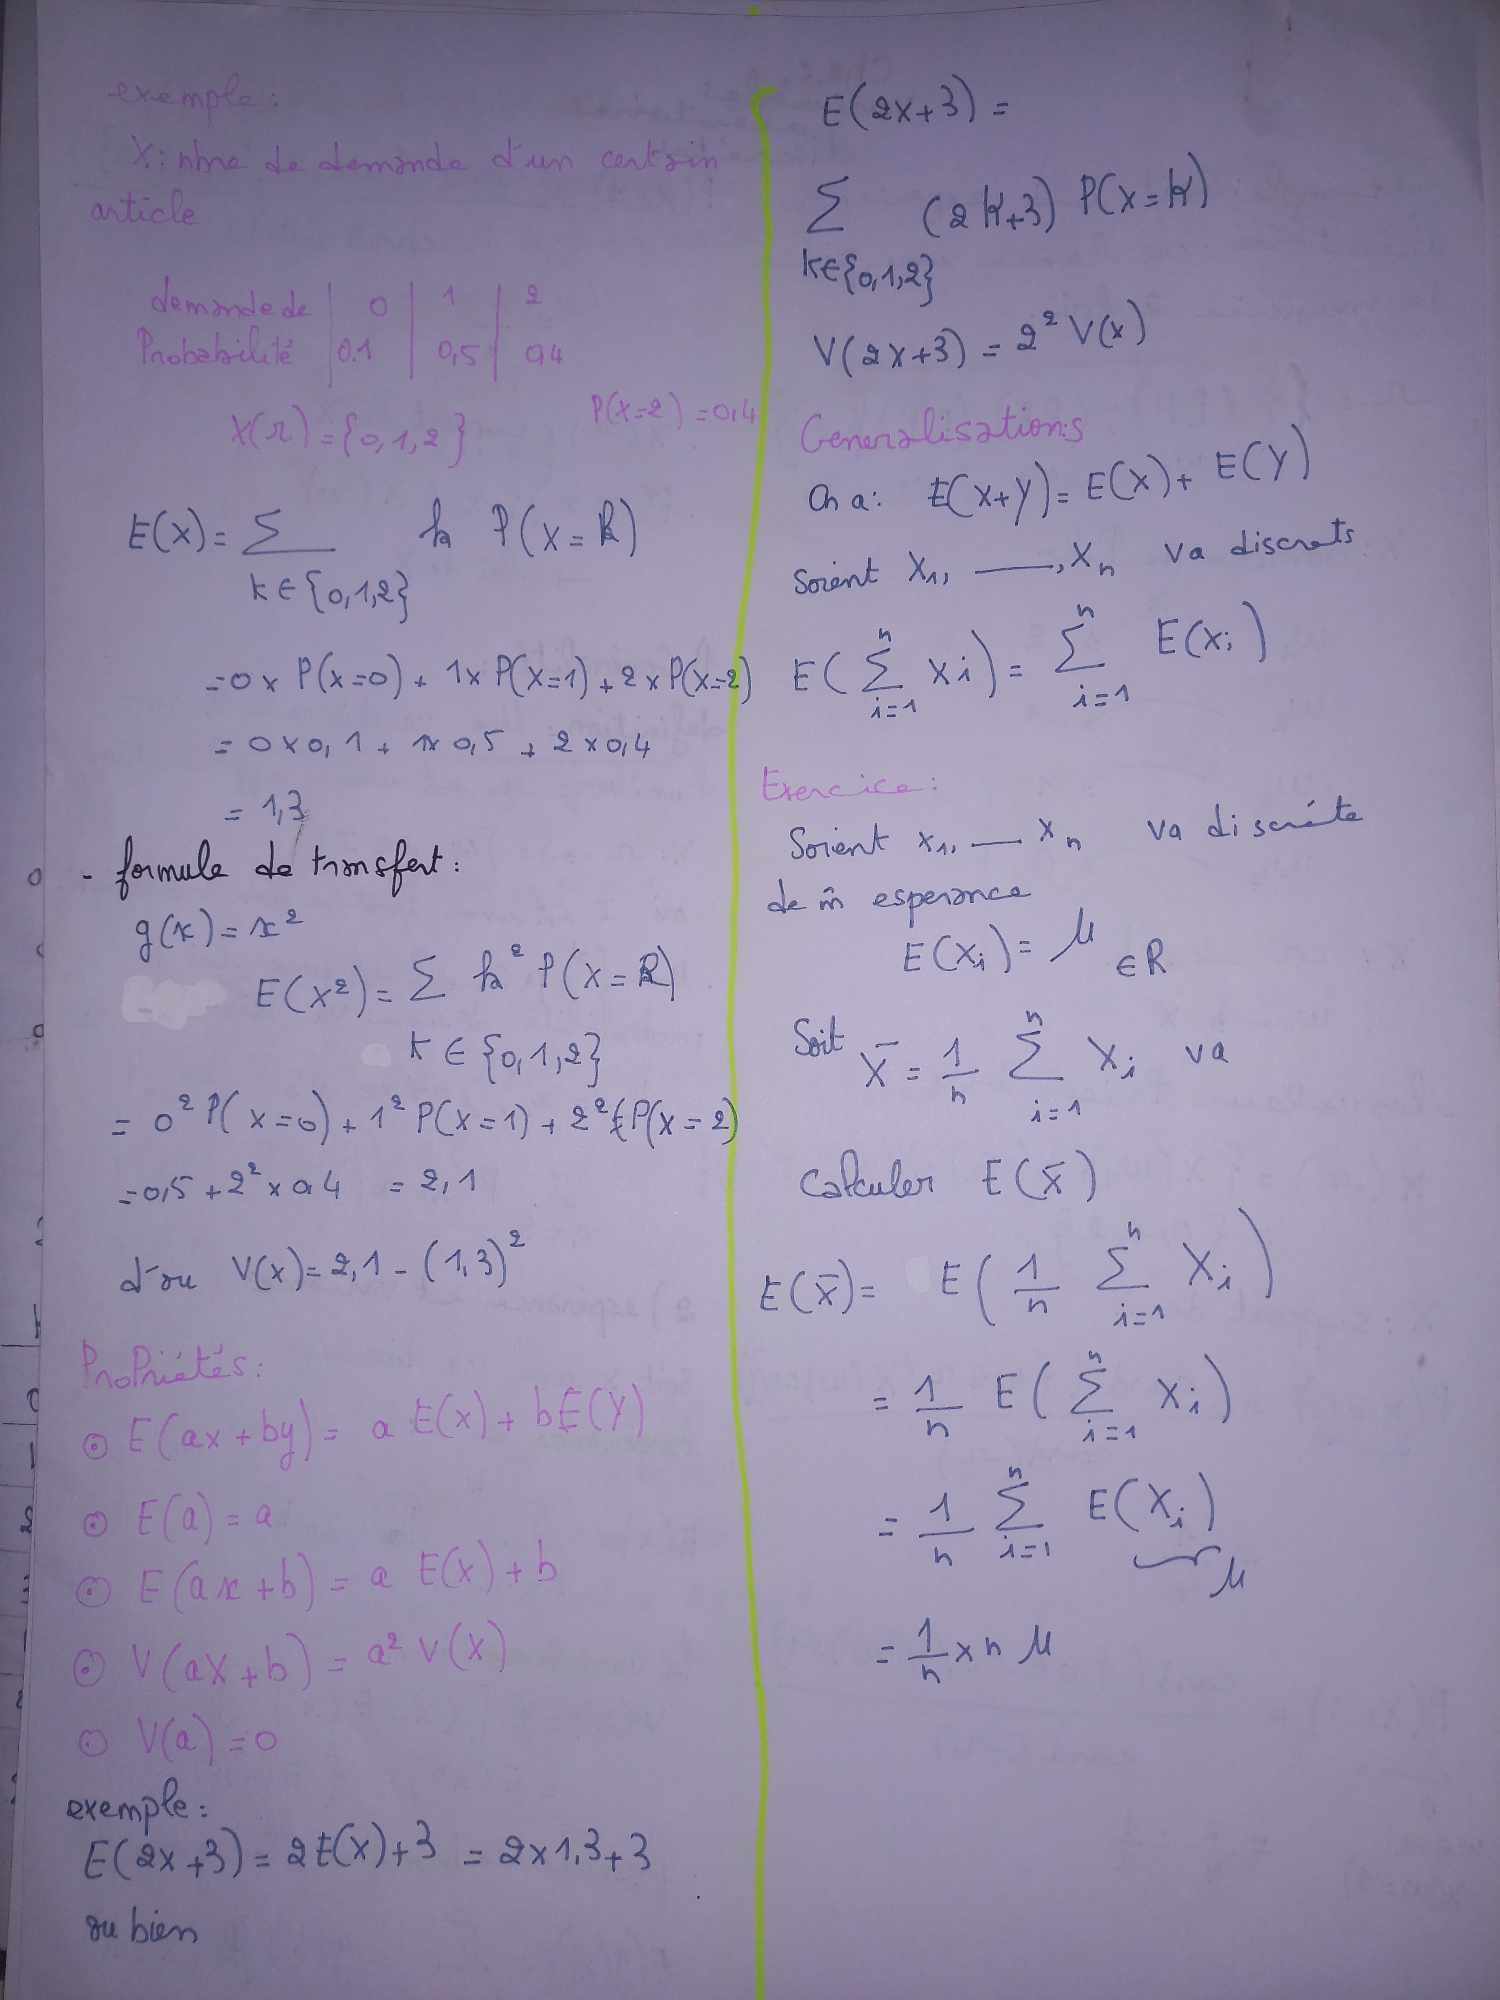 exemple:
X: nbre de demande d'un certain
article
demande de | 0 | 1 | 2
Probabilité | 0.1 | 0,5 | 0,4
X(Ω) = {0,1,2}
P(X=2) = 0,4
E(X) = Σ k P(X=k)
k∈{0,1,2}
= 0 x P(X=0) + 1x P(X=1) + 2 x P(X=2)
= 0 x 0,1 + 1x 0,5 + 2 x 0,4
= 1,3
- formule de transfert:
g(x) = x²
E(X²) = Σ k² P(X=k)
k ∈ {0,1,2}
= 0² P(X=0) + 1² P(X=1) + 2² P(X=2)
= 0,5 + 2² x 0,4 = 2,1
d'ou V(x) = 2,1 - (1,3)²
Propriétés:
⊙ E(ax + by) = a E(x) + bE(Y)
⊙ E(a) = a
⊙ E(ax + b) = a E(x) + b
⊙ V(aX + b) = a² V(X)
⊙ V(a) = 0
exemple:
E(2x + 3) = 2E(x) + 3 = 2x1,3+3
ou bien
E(2x + 3) =
Σ (2k+3) P(X=k)
k∈{0,1,2}
V(2x+3) = 2² V(x)
Generalisations
On a: E(X+Y) = E(X) + E(Y)
Soient X₁, ——, Xₙ va discrets
E(Σ xi) = Σ E(xi)
i=1 n i=1 n
Exercice:
Soient x₁, — xₙ va discréte
de m̂ esperance
E(Xi) = μ ∈ R
Soit X̄ = 1/n Σ Xi va
i=1 n
Calculer E(x̄)
E(x̄) = E(1/n Σ Xi)
i=1 n
= 1/n E(Σ Xi)
i=1 n
= 1/n Σ E(Xi)
i=1 n
μ
= 1/n x n μ